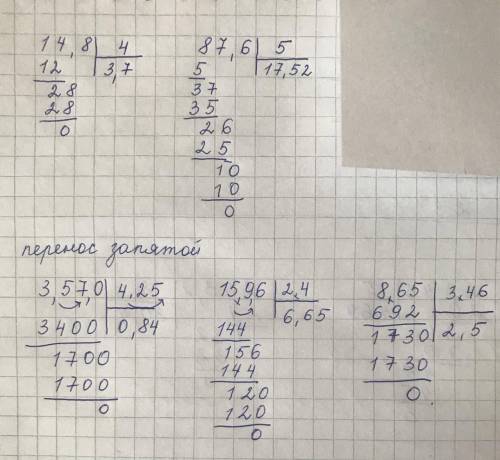 14,8 4
12 3,7
28
28
0
87,6 5
5 17,52
37
35
26
25
10
10
0
перенос запятой
3,57,0 4,25
3400 0,84
1700
1700
0
15,9,6 2,4
144 6,65
156
144
120
120
0
8,65 3,46
692 2,5
1730
1730
0